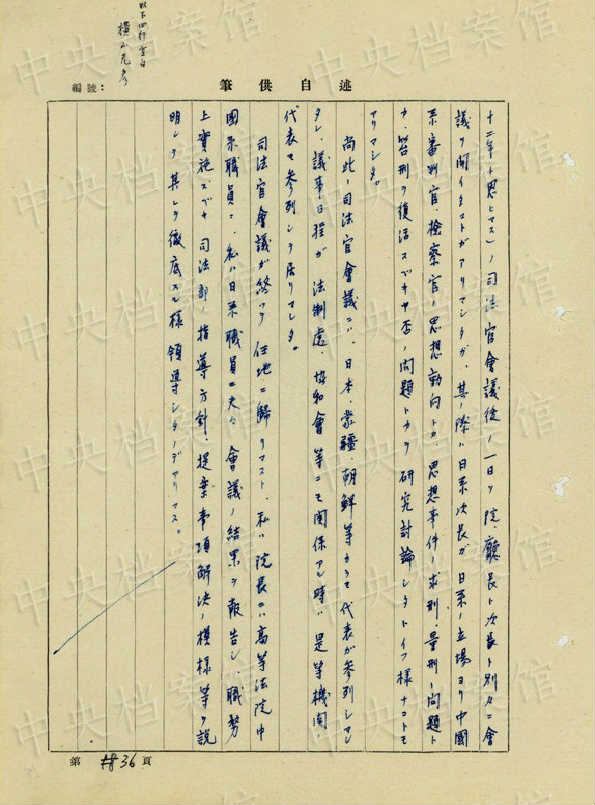 以下四行空白
編號：
筆供自述
十二年ト思ヒマス）ノ司法官會議後ノ一日ヲ院、廳長ト次長ト別々ニ會
議ヲ開イタコトガアリマシタガ、其ノ際ハ日系次長ガ日系ノ立場ヨリ中國
系審判官、検察官ノ思想動向トカ、思想事件ノ求刑、量刑ノ問題ト
カ、笞刑ヲ復活スベキヤ否ノ問題トカヲ研究討論シタトイフ様ナコトモ
アリマシタ。
尚此ノ司法官會議ニハ、日本、蒙疆、朝鮮等カラモ代表ガ参列シマシ
タシ、議事日程ガ法制處、協和會等ニモ関係アル時ハ是等機関ノ
代表モ参列シテ居リマシタ。
司法官會議ガ終ッテ任地ニ歸リマスト、私ハ院長ハ高等法院中
國系職員ニ、私ハ日系職員ニ夫々會議ノ結果ヲ報告シ、職務
上實施スベキ司法部ノ指導方針、提案事項解決ノ模様等ヲ説
明シテ其レヲ徹底スル様領導シタノデアリマス。
第 36 頁
中央档案馆